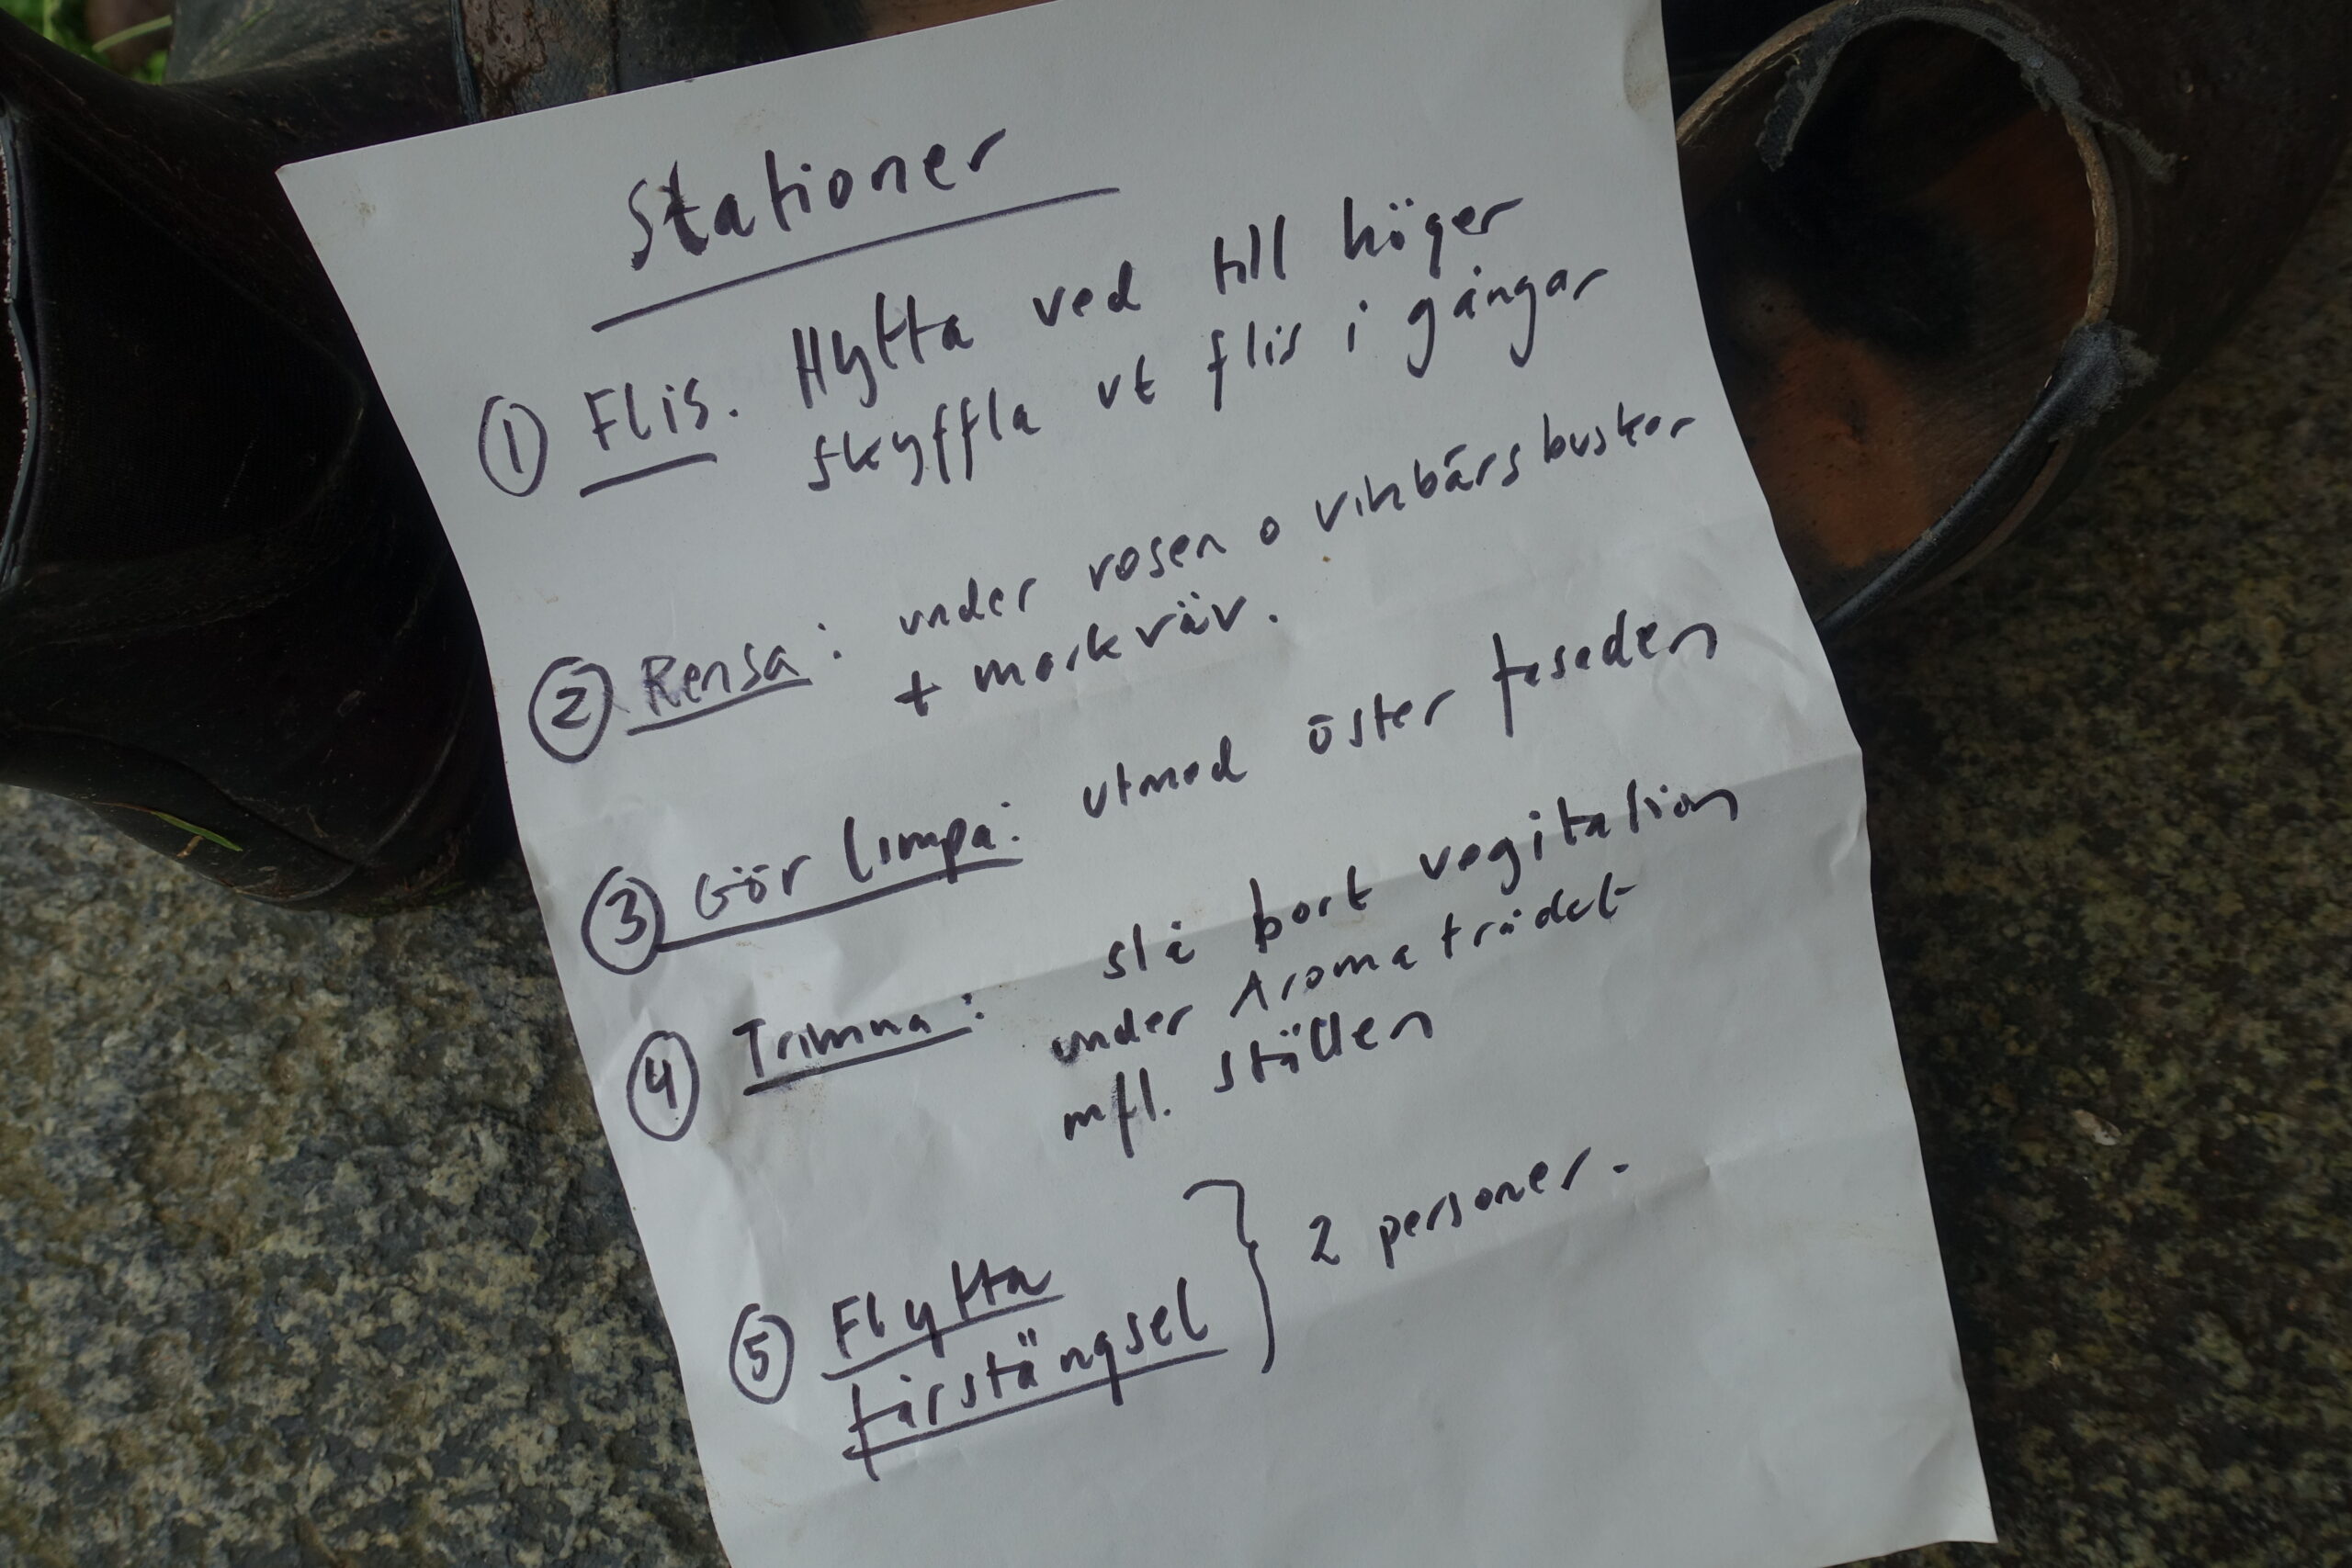 Stationer
① Flis. Hytta ved till höger
skyffla ut flis i gångar
② Rensa: under rosen o vinbärsbuskar
+ markväv.
③ Gör limpa: utmed öster fasaden
④ Trimma: slå bort vegitation
under Aromaträdet
mfl. ställen
⑤ Flytta } 2 personer.
fårstängsel